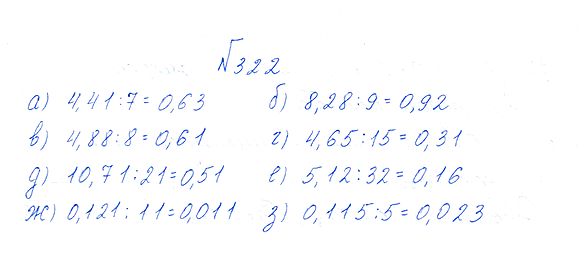 №322
а) 4,41:7=0,63 б) 8,28:9=0,92
в) 4,88:8=0,61 г) 4,65:15=0,31
д) 10,71:21=0,51 е) 5,12:32=0,16
ж) 0,121:11=0,011 з) 0,115:5=0,023